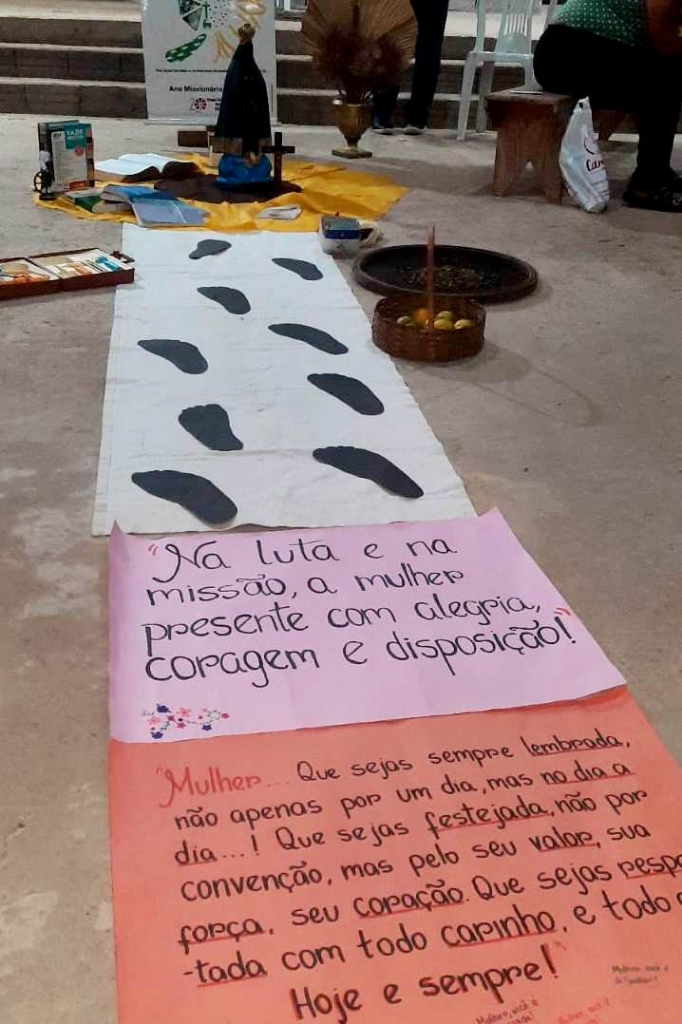 Ano Missionário
"Na luta e na
missão, a mulher
presente com alegria,
coragem e disposição!"
"Mulher... Que sejas sempre lembrada,
não apenas por um dia, mas no dia a
dia...! Que sejas festejada, não por
convenção, mas pelo seu valor, sua
força, seu coração. Que sejas respe
-tada com todo carinho, e todo
Hoje e sempre!"